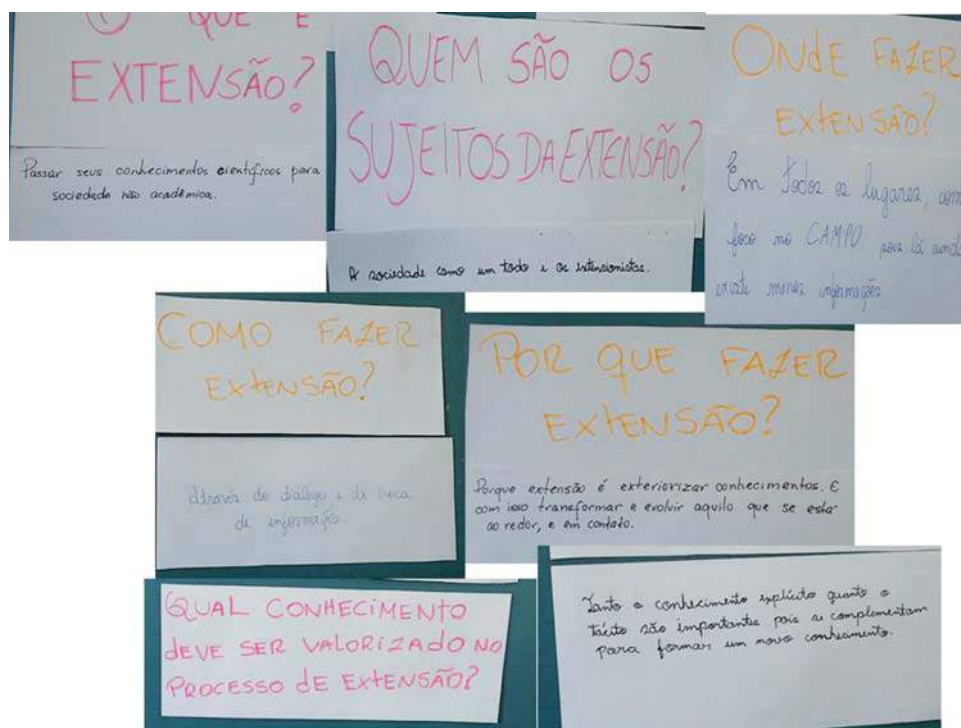 ① QUE É
EXTENSÃO?
Passar seus conhecimentos científicos para
sociedade não acadêmica.
QUEM SÃO OS
SUJEITOS DA EXTENSÃO?
A sociedade como um todo e os extensionistas.
ONDE FAZER
EXTENSÃO?
Em todos os lugares, com
foco no CAMPO pois lá aind
existe menos informações
COMO FAZER
EXTENSÃO?
Através do diálogo e da troca
de informações.
POR QUE FAZER
EXTENSÃO?
Porque extensão é exteriorizar conhecimentos. E
com isso transformar e evoluir aquilo que se esta
ao redor, e em contato.
QUAL CONHECIMENTO
DEVE SER VALORIZADO NO
PROCESSO DE EXTENSÃO?
Tanto o conhecimento explícito quanto o
tácito são importantes pois se complementam
para formar um novo conhecimento.